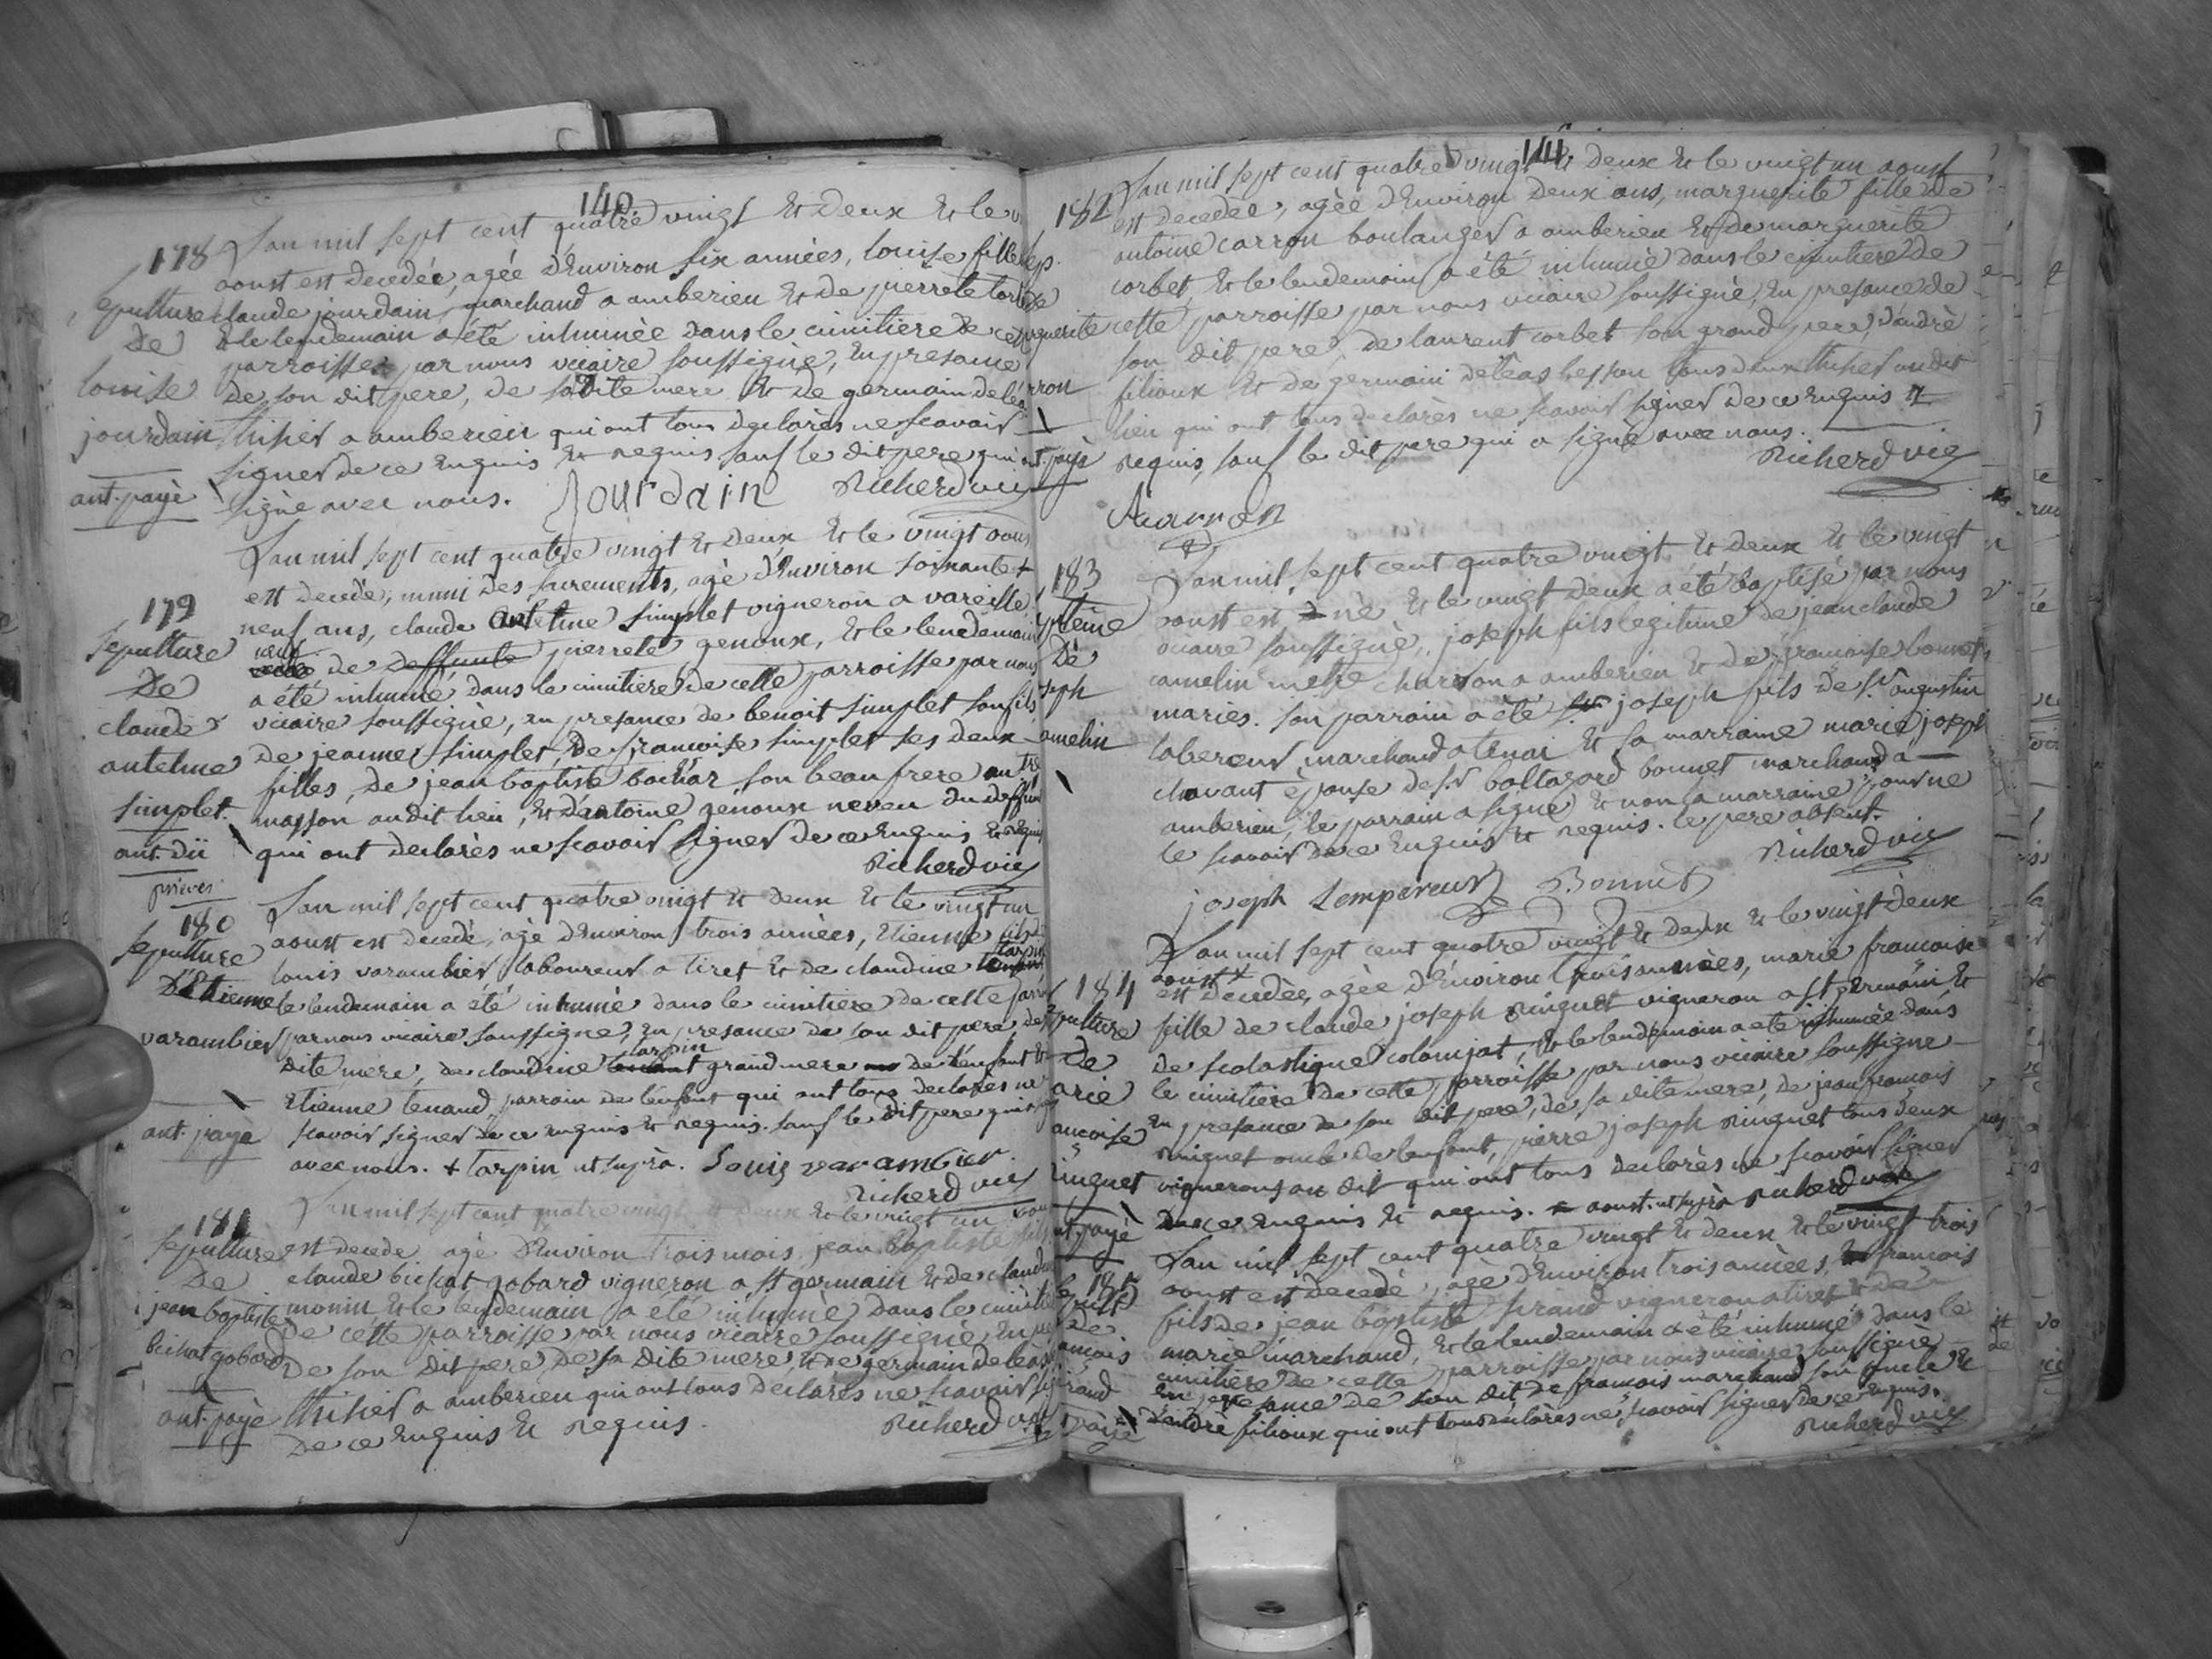 140
178
Sepulture
De
louise
jourdain
ant. payè
L'an mil sept cent quatre vingt et deux et le
aoust est decedée, agée d'Environ six années, louise fille
claude jourdain, marchand a amberieu et de pierrete
et le lendemain a été inhumèe dans le cimitiere de
parroisse par nous vicaire soussignè, En presance
de son dit pere, de sa dite mere et de germain
thisier a amberieu qui ont tous declarès ne scavoir
signer de ce Enquis et requis sauf le dit pere qui a
signè avec nous. Jourdain Richerd vic
179
Sepulture
De
claude
antelme
simplet.
ant. dü
L'an mil sept cent quatre vingt et deux et le vingt aous
est decedè, muni des sacrements, agè d'Environ soixante +
neuf ans, claude antelme simplet vigneron a vareille
veuf de deffunte pierrete genoux, et le lendemain
a été inhumé dans le cimitiere de cette parroisse par nous
vicaire soussignè, en presance de benoit simplet son fils,
de jeanne simplet, de francoise simplet ses deux
filles, de jean baptiste bochar son beau frere
masson au dit lieu, et d'antoine genoux neveu du
qui ont declarès ne scavoir signer de ce Enquis et requis
Richerd vic
180
Sepulture
D'Etienne
varambier
ant. paye
L'an mil sept cent quatre vingt et deux et le vingt un
aoust est decedè, agè d'Environ trois années, Etienne fils
louis varambier laboureur a tiret et de claudine tarpin
le lendemain a été inhumè dans le cimitiere de cette
par nous vicaire soussigne, en presance de son dit pere
dite mere, de claudine tarpin grand mere de l'enfant et
Etienne tenand parrain de l'enfant qui ont tous declarès ne
scavoir signer de ce enquis et requis. sauf le dit pere qui a
avec nous. + tarpin ut suprà. Louis varambier.
Richerd vic
181
Sepulture
De
jean baptiste
bichat gobard
ant. payè
L'an mil sept cent quatre vingt et deux et le vingt un
est decede agè d'Environ trois mois, jean baptiste fils
claude bichat gobard vigneron a st germain et de
monin et le lendemain a été inhumè dans le
de cette parroisse par nous vicaire soussignè, En
de son dit pere, de sa dite mere, et de germain
thisier a amberieu qui ont tous declarès ne scavoir
de ce Enquis et requis. Richerd vic
141
182
Sep.
De
L'an mil sept cent quatre vingt et deux et le vingt un aoust
est decedèe, agèe d'Environ deux ans, marguerite fille de
antoine carron boulanger a amberieu et de marguerite
corbet, et le lendemain a été inhumèe dans le cimitiere de
cette parroisse par nous vicaire soussignè, En presance de
son dit pere, de laurent corbet son grand pere, d'andrè
filioux et de germain tous deux thisier au dit
lieu qui ont tous declarès ne scavoir signer de ce Enquis et
requis, sauf le dit pere qui a signè avec nous.
Richerd vic
183
De
L'an mil sept cent quatre vingt et deux et le vingt
aoust est nè et le vingt deux a été baptisè par nous
vicaire soussignè, joseph fils legitime de jean claude
camelin charron a amberieu et de francoise bonnet
mariès. son parrain a été joseph fils de Sr augustin
marchand a tenai et sa marraine marie joseph
chavant èpouse de Sr baltazard bonnet marchand a
amberieu, le parrain a signè et non la marraine pour ne
le scavoir de ce Enquis et requis. le pere absent.
Richerd vic
joseph Lempereur Bonnet
184
De
L'an mil sept cent quatre vingt et deux et le vingt deux
aoust +
est decedèe, agèe d'Environ trois années, marie francoise
fille de claude joseph ringuet vigneron a st germain et
de scolastique colomjat, et le lendemain a ete inhumèe dans
le cimitiere de cette parroisse par nous vicaire soussigne
En presance de son dit pere, de sa dite mere, de jean francois
ringuet oncle de l'enfant, pierre joseph ringuet tous deux
vignerons au dit qui ont tous declarès ne scavoir signer
de ce Enquis et requis. + aoust. ut suprà Richerd vic
185
De
L'an mil sept cent quatre vingt et deux et le vingt trois
aoust est decedè, agè d'Environ trois années, francois
fils de jean baptiste vigneron a tiret et de
marie marchand, et le lendemain a été inhumè dans le
cimitiere de cette parroisse par nous vicaire soussigne
En presance de son dit de francois marchand son oncle et
d'andrè filioux qui ont tous declarès ne scavoir signer de ce Enquis.
Richerd vic